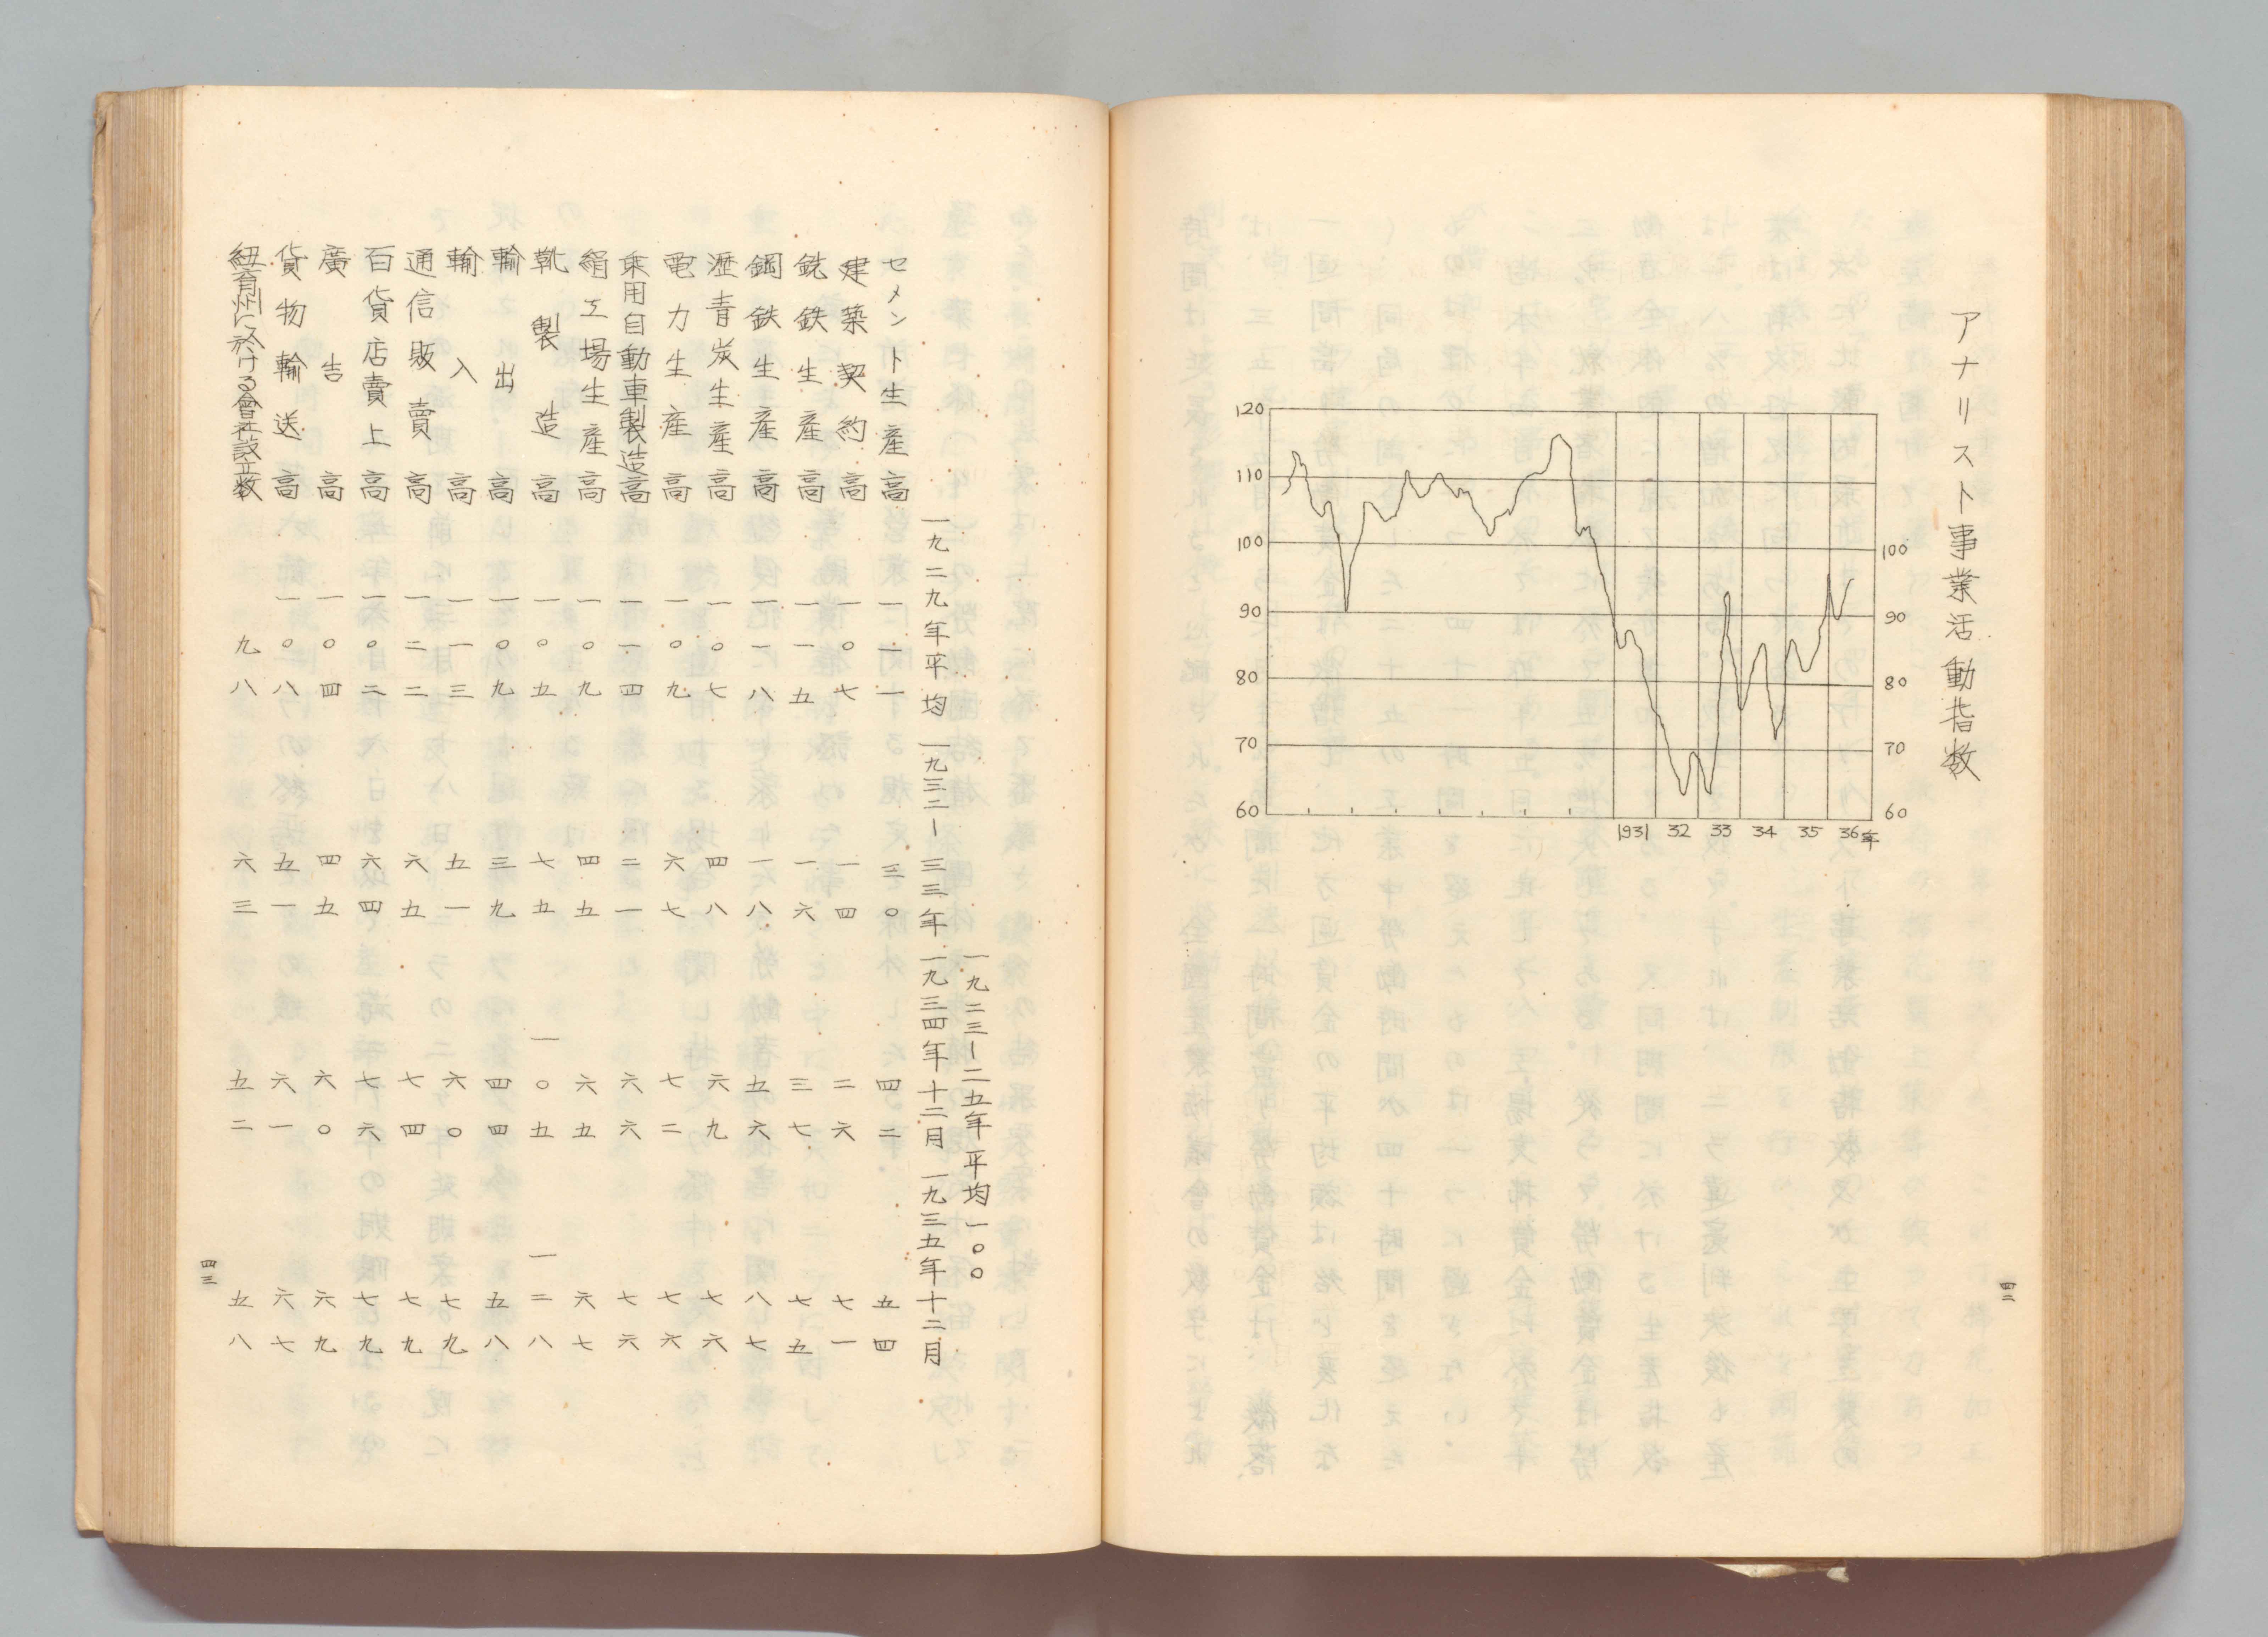 アナリスト事業活動指数
120
110
100
90
80
70
60
100
90
80
70
60
1931 32 33 34 35 36年
四二
一九二三ー二五年平均一〇〇
一九二九年平均 一九三二ー三三年 一九三四年十二月 一九三五年十二月
セメント生産高 一一一 三〇 四二 五四
建築契約高 一〇七 一四 二六 七一
銑鉄生産高 一一五 一六 三七 七五
鋼鉄生産高 一一八 一八 五六 八七
瀝青炭生産高 一〇七 四八 六九 七六
電力生産高 一〇九 六七 七二 七六
乗用自動車製造高 一一四 二一 六六 七六
絹工場生産高 一〇九 四五 六五 六七
靴製造高 一〇五 七五 一〇五 一二八
輸出高 一〇九 三九 四四 五八
輸入高 一一三 五一 六〇 七九
通信販賣高 一二二 六五 七四 七九
百貨店賣上高 一〇二 六四 七六 七九
廣告高 一〇四 四五 六〇 六九
貨物輸送高 一〇八 五一 六一 六七
紐育州に於ける會社設立数 九八 六三 五二 五八
四三